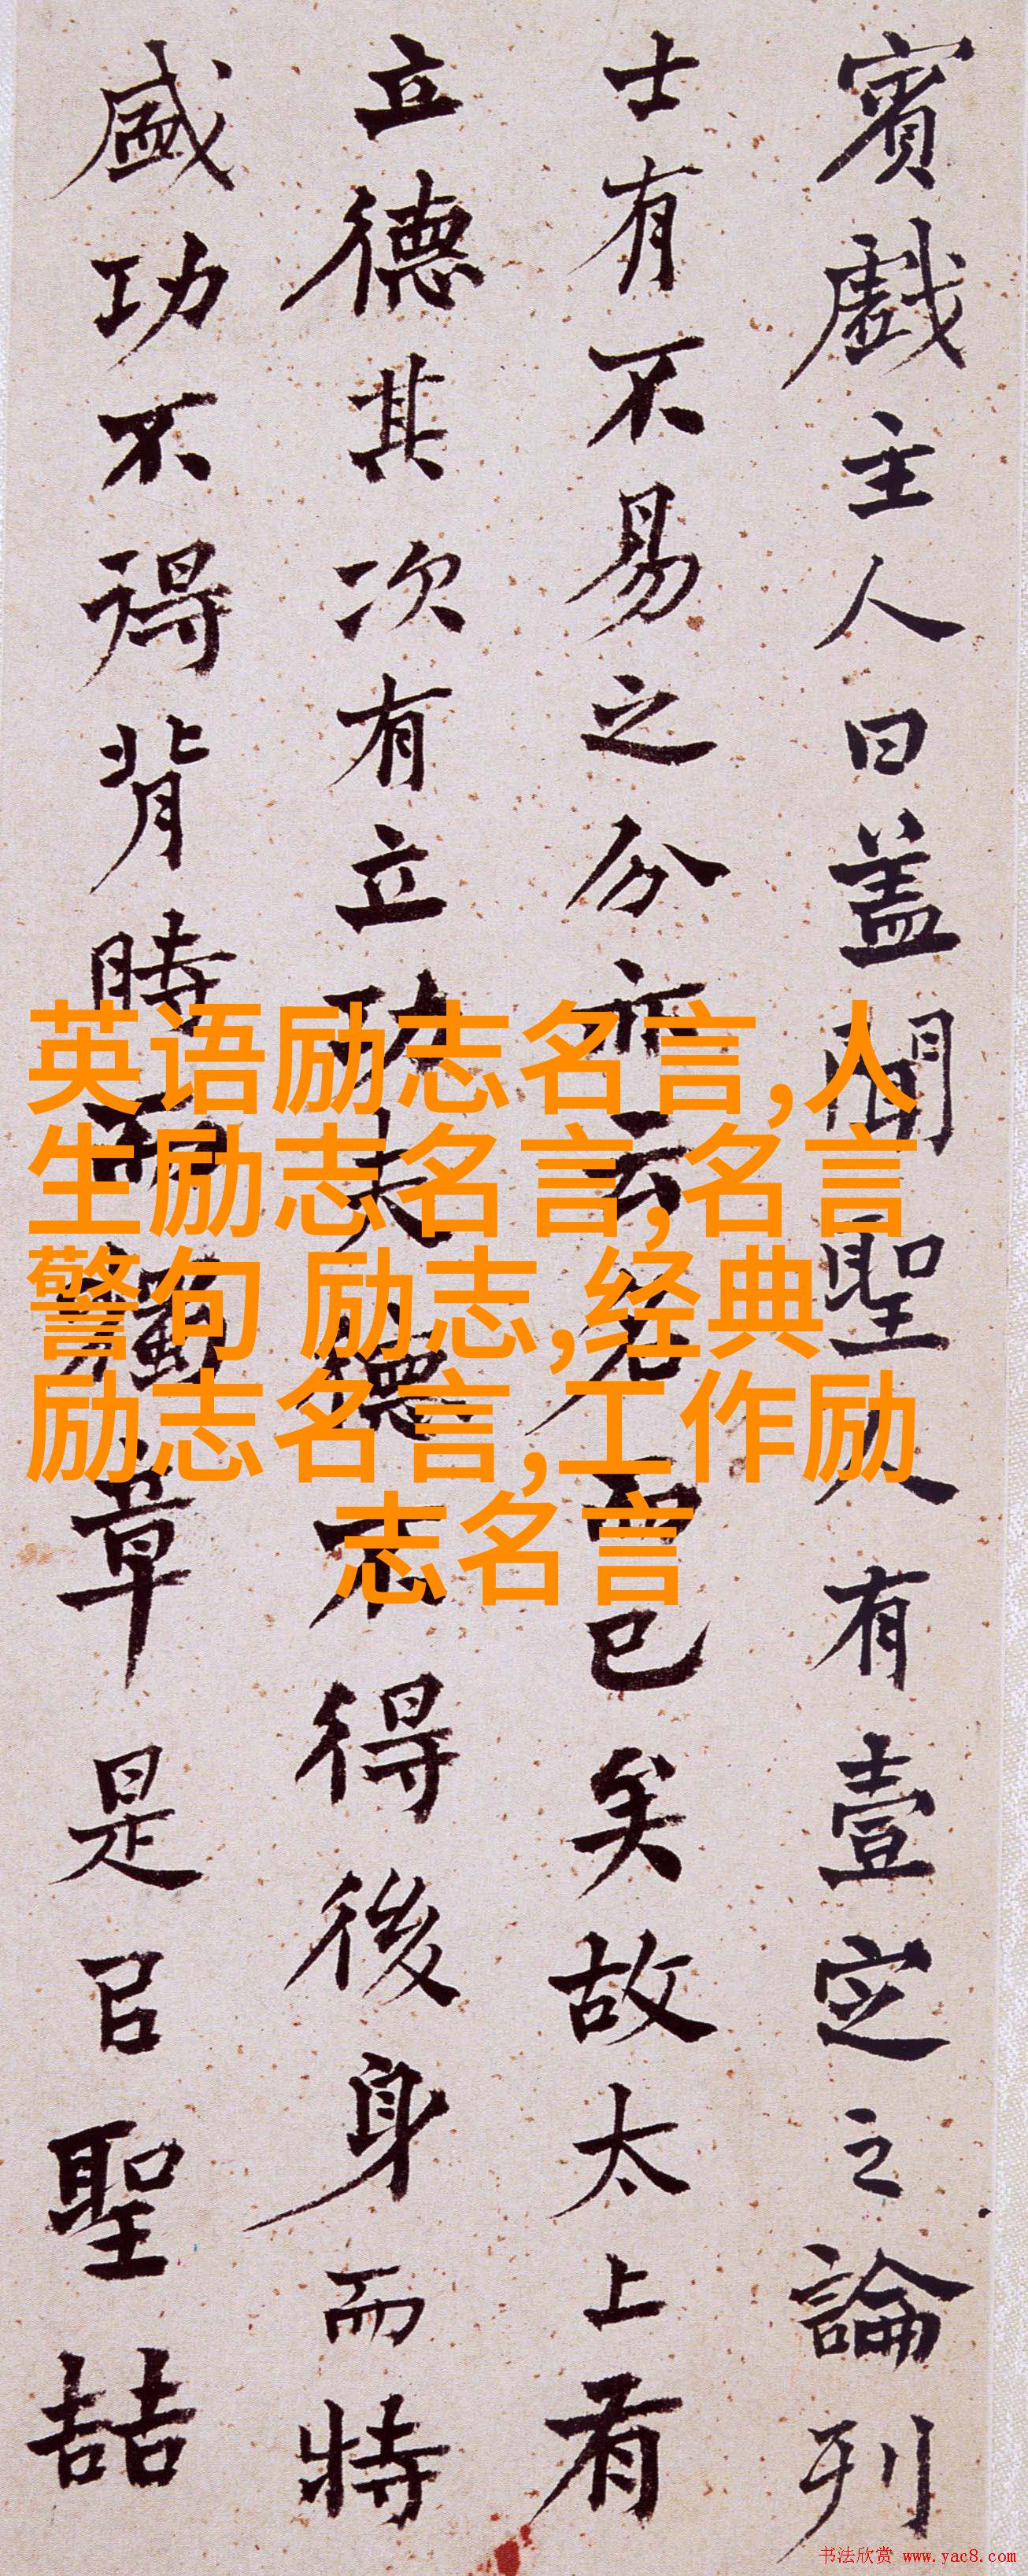 賓戲主人曰盖聞聖人有壹定之論列
士有不易之分亦云名而已矣故太上有
立德其次有立功夫德不得後身而特
盛功不得背時而獨章是㠯聖喆
英语励志名言,人
生励志名言,名言
警句 励志,经典
励志名言,工作励
志名言
书法欣赏 www.yac8.com